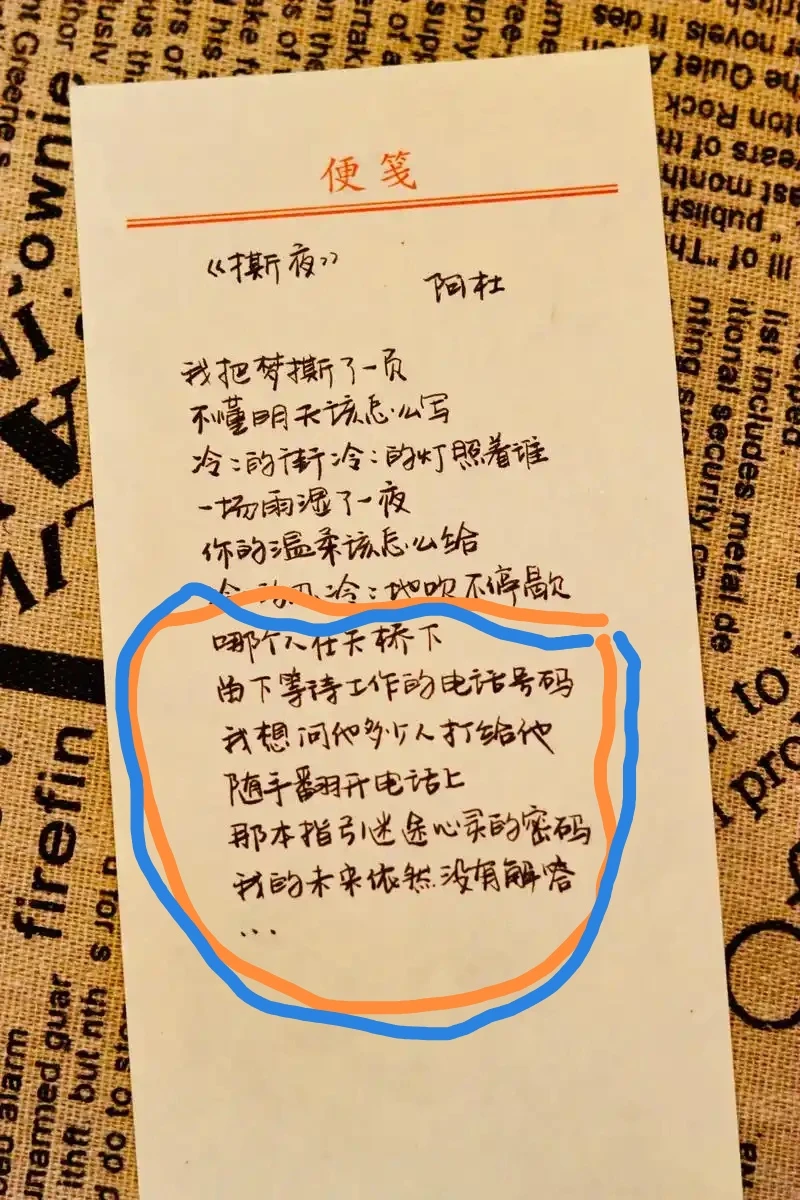 便笺
《撕夜》
阿杜
我把梦撕了一页
不懂明天该怎么写
冷:的街冷:的灯照着谁
一场雨湿了一夜
你的温柔该怎么给
冷:的风冷:地吹不停歇
哪个人在天桥下
留下等待工作的电话号码
我想问他多少人打给他
随手翻开电话上
那本指引迷途心灵的密码
我的未来依然没有解答
...
firefin
list includes metal de
itional security
last month
publish
unarmed guar